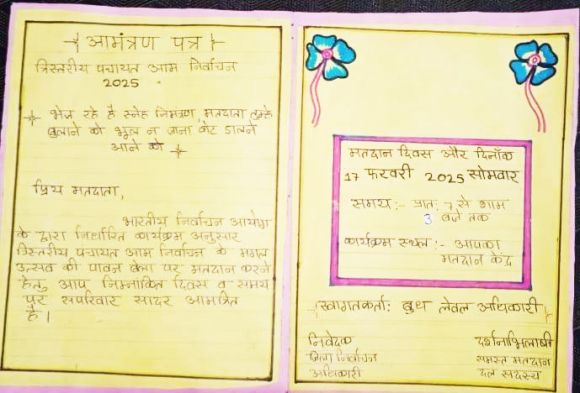 आमंत्रण पत्र
त्रिस्तरीय पंचायत आम निर्वाचन
2025
भेज रहे है स्नेह निमंत्रण, मतदाता तुम्हे
बुलाने को भूल न जाना वोट डालने
आने को
प्रिय मतदाता,
भारतीय निर्वाचन आयोग
के द्वारा निर्धारित कार्यक्रम अनुसार
त्रिस्तरीय पंचायत आम निर्वाचन के महान
उत्सव की पावन बेला पर मतदान करने
हेतु आप निम्नांकित दिवस व समय
पर सपरिवार सादर आमंत्रित
है ।
मतदान दिवस और दिनाँक
17 फरवरी 2025 सोमवार
समय :- प्रातः 7 से शाम
3 बजे तक
कार्यक्रम स्थल :- आपका
मतदान केंद्र
स्वागतकर्ता: बुथ लेवल अधिकारी
निवेदक
जिला निर्वाचन
अधिकारी
दर्शनाभिलाषी
समस्त मतदान
दल सदस्य